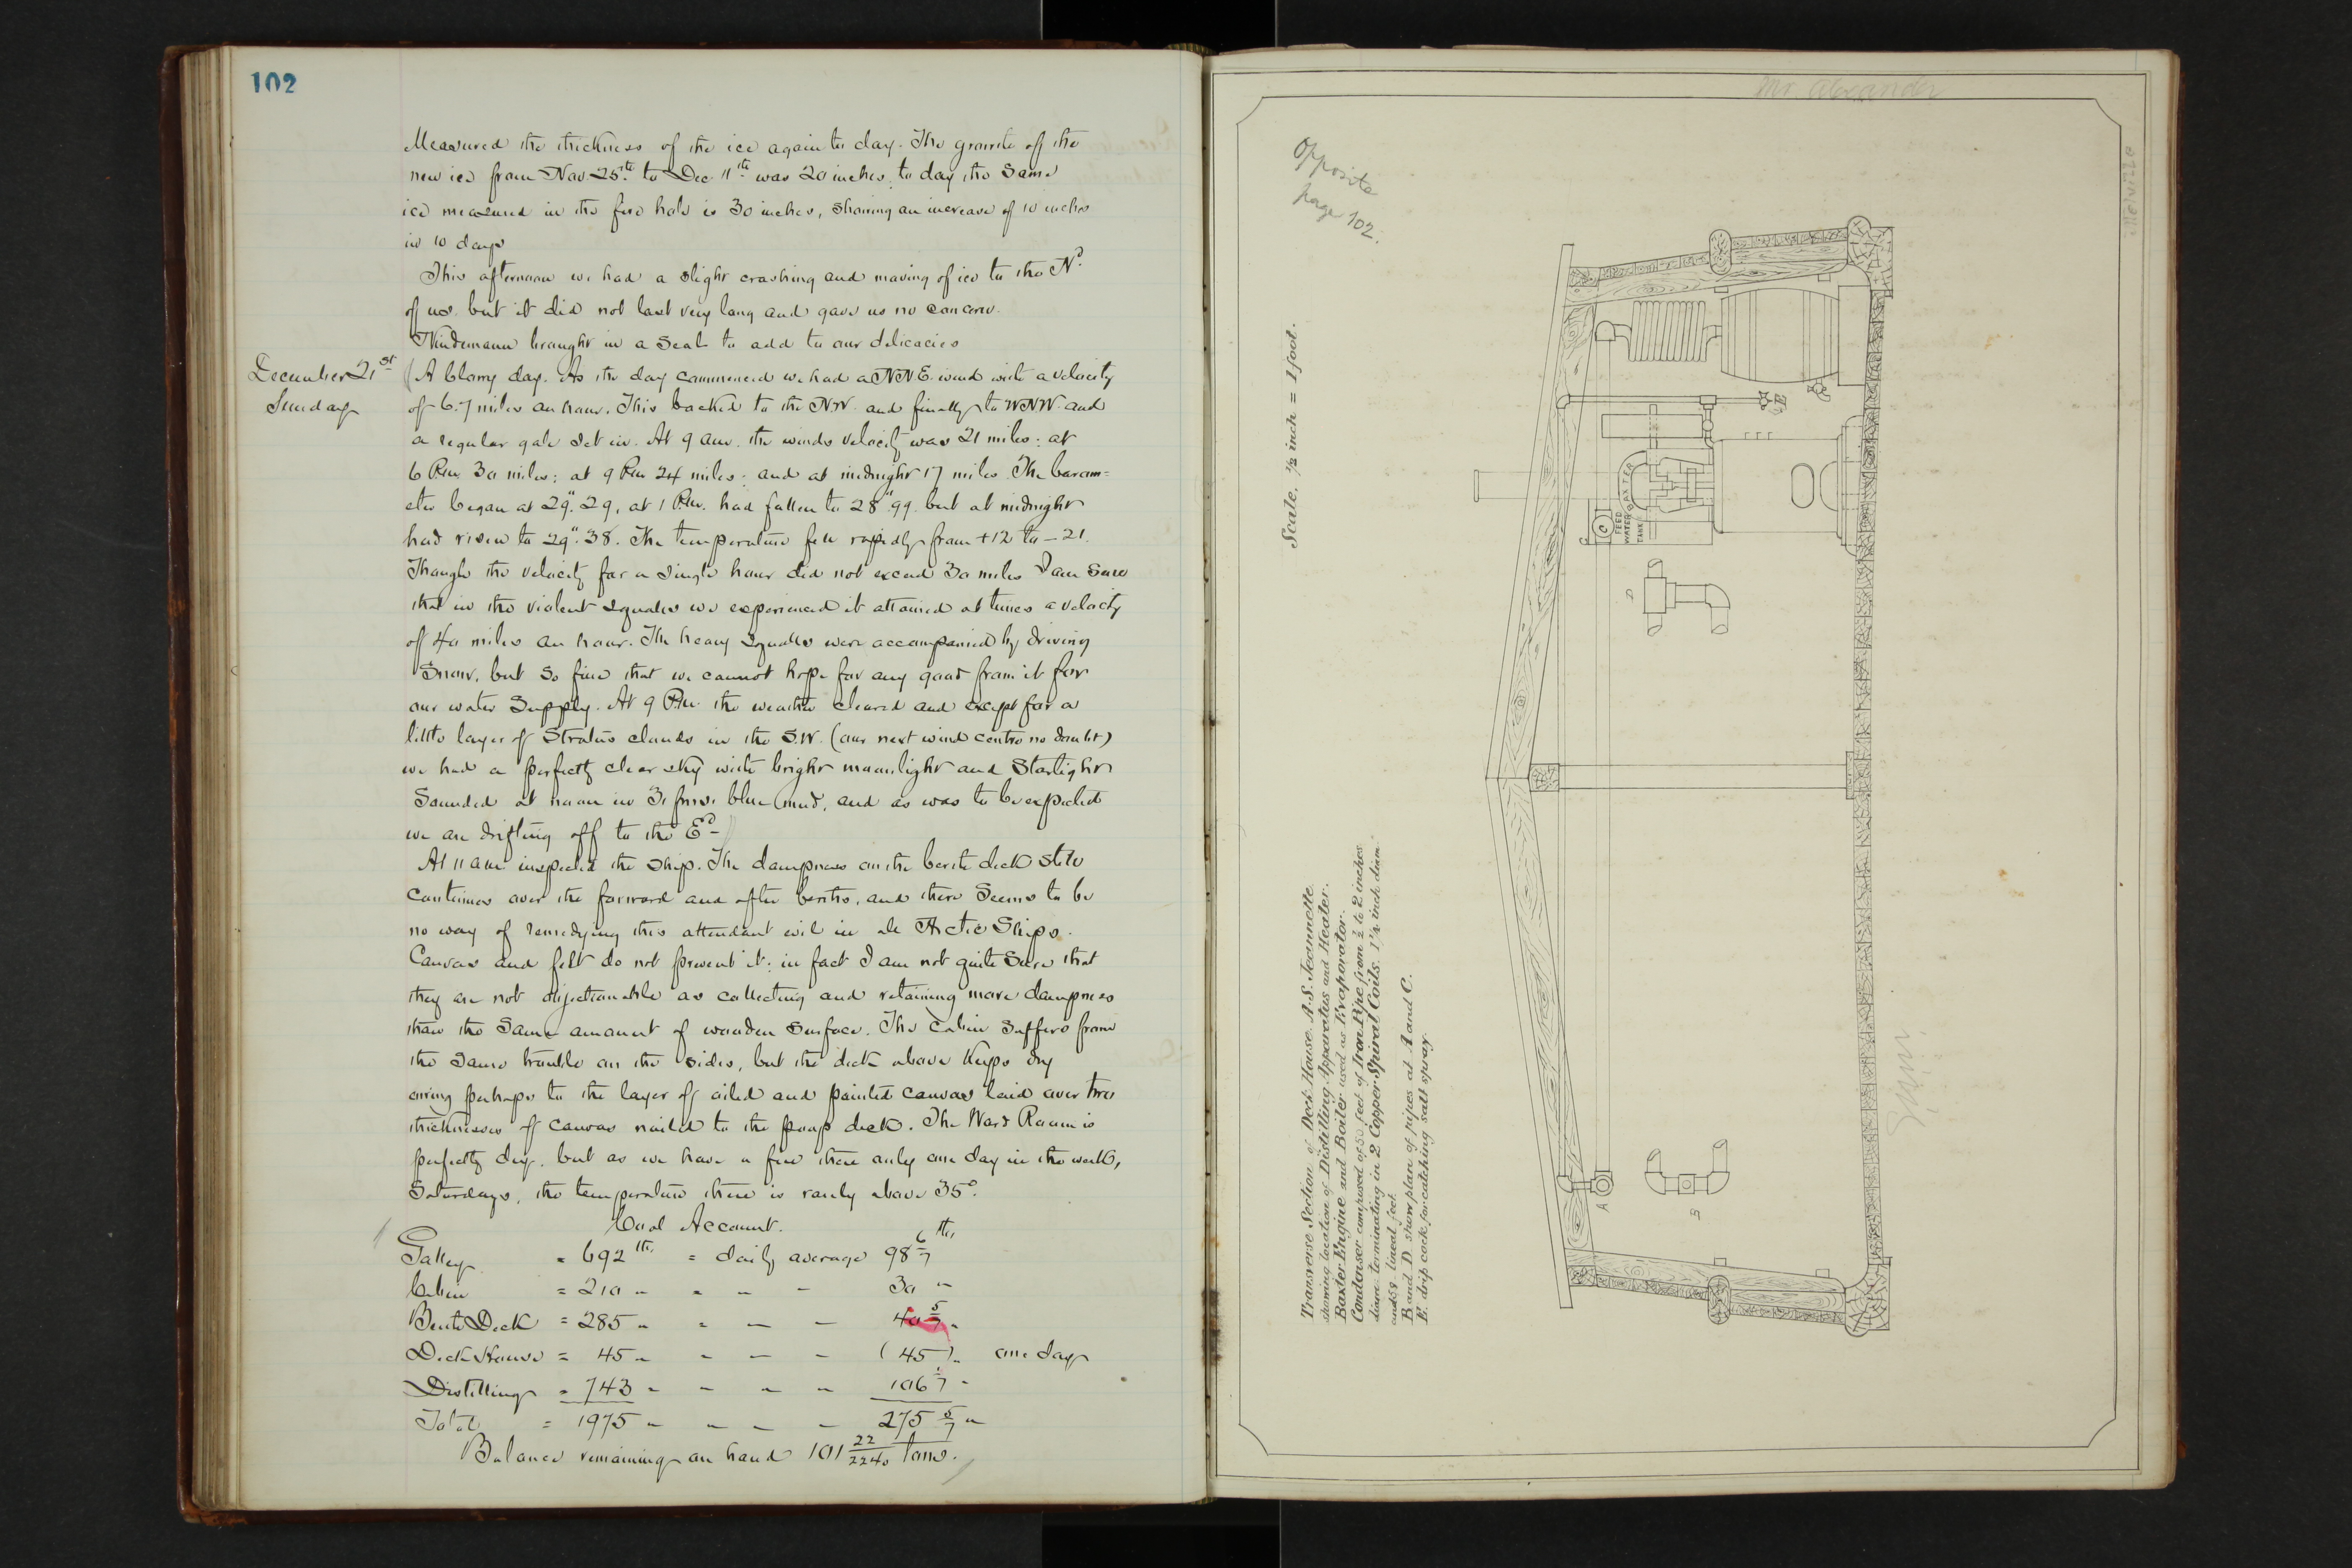 102
Measured the thickness of the ice again to day. The growth of the
new ice from Nov 25th to Dec. 11th was 20 inches, to day the same
ice measured in the fire hole is 30 inches, showing an increase of 10 inches
in 10 days
This afternoon we had a slight crashing and moving of ice to the Nd
of us. but it did not last very long and gave us no concern.
Nindemann brought in a seal to add to our delicacies
December 21st
Sunday
(A blowy day. As the day commenced we had a NNE. wind with a velocity
of 6.7 miles an hour. This backed to the NW. and finally to WNW. and
a regular gale set in. At 9 am. the winds velocity was 21 miles: at
6 P.m. 30 miles: at 9 P.m 24 miles: and at midnight 17 miles. The barom=
eter began at 29".29, at 1 P.m. had fallen to 28".99. but at midnight
had risen to 29".38. The temperature fell rapidly from +12 to -21.
Though the velocity for a single hour did not exceed 30 miles I am sure
that in the violent squalls we experienced it attained at times a velocity
of 40 miles an hour. The heavy squalls were accompanied by driving
snow, but so fine that we cannot hope for any good from it for
our water supply. At 9 P.m. the weather cleared and except for a
little layer of Stratus clouds in the S.W. (our next wind centre no doubt)
we had a perfectly clear sky with bright moonlight and starlight
Sounded at noon in 31 fms. blue mud, and as was to be expected
we are drifting off to the Ed -)
At 11 am. inspected the ship. The dampness on the berth deck still
continues over the forward and after berths, and there seems to be
no way of remedying this attendant evil in all Arctic Ships.
Canvas and felt do not prevent it: in fact I am not quite sure that
they are not objectionable as collecting and retaining more dampness
than the same amount of wooden surface. The Cabin suffers from
the same trouble on the sides, but the deck above keeps dry
owing perhaps to the layer of oiled and painted canvas laid over two
thicknesses of canvas nailed to the poop deck. The Ward Room is
perfectly dry, but as we have a fire there only one day in the week,
Saturdays, the temperature there is rarely above 35°.
Coal Account.
Galley = 692 lbs. = daily average 98 6/7 lbs
Cabin = 210 " " " - 30 "
Berth Deck = 285 " " - - 40 5/7 "
Deck House = 45 " - - - (45) " one day
Distilling = 743 - - - - 106 1/7 "
Total = 1975 " - - - 275 5/7 "
Balance remaining on hand 101 22/2240 tons.
Mr. Alexander
Opposite
page 102.
Scale. ½ inch = 1 foot.
Transverse Section of Deck House A.S. Jeannette.
showing location of Distilling Apparatus and Heater.
Baxter Engine and Boiler used as Evaporator.
Condenser composed of 50 feet of Iron Pipe from ½ to 2 inches
diam. terminating in 2 Copper Spiral Coils. 1¼ inch diam.
and 58 lineal feet.
B and D show plan of pipes at A and C.
E. drip cock for catching salt spray.
E
BAXTER
C
FEED
WATER
TANK
C
D
A
B